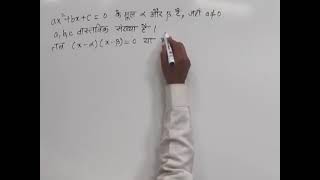 ax²+bx+c=0 के मूल α और β है, जहाँ a≠0
a,b,c वास्तविक संख्या है।
तब (x-α)(x-β)=0 या x